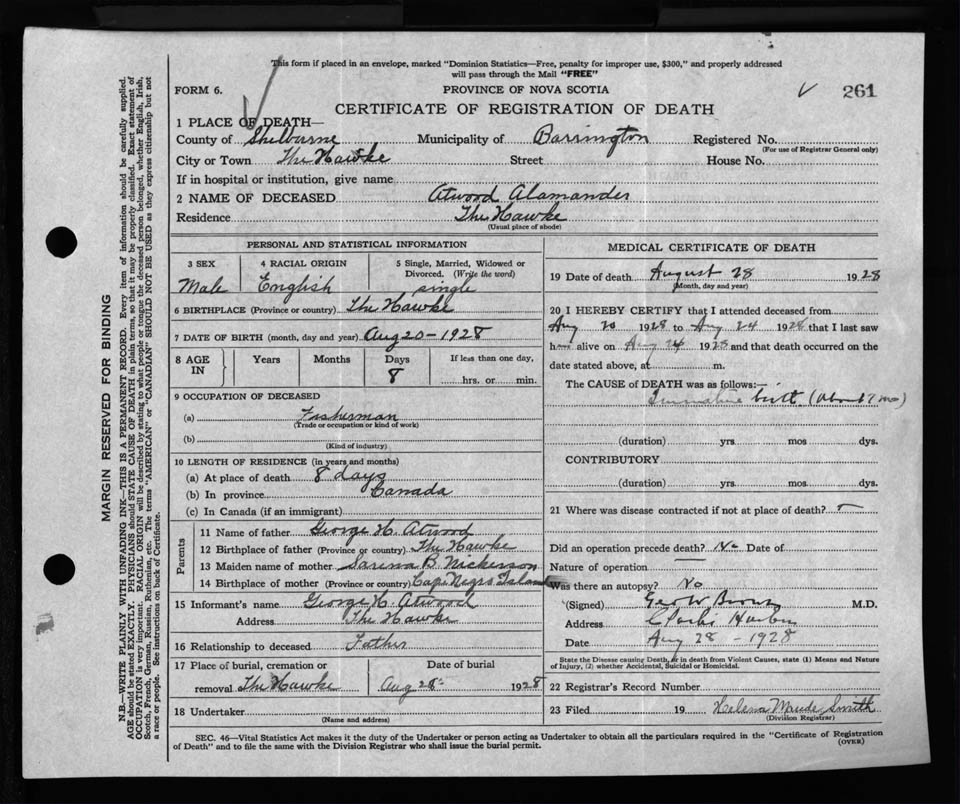 This form if placed in an envelope, marked "Dominion Statistics—Free, penalty for improper use, $300," and properly addressed
will pass through the Mail "FREE"
FORM 6.
PROVINCE OF NOVA SCOTIA
261
CERTIFICATE OF REGISTRATION OF DEATH
1 PLACE OF DEATH—
County of Shelburne Municipality of Barrington Registered No.
(For use of Registrar General only)
City or Town The Hawke Street House No.
If in hospital or institution, give name
2 NAME OF DECEASED Atwood Alamander
Residence The Hawke
(Usual place of abode)
PERSONAL AND STATISTICAL INFORMATION
3 SEX Male
4 RACIAL ORIGIN English
5 Single, Married, Widowed or Divorced. (Write the word) single
6 BIRTHPLACE (Province or country) The Hawke
7 DATE OF BIRTH (month, day and year) Aug 20-1928
8 AGE IN Years Months Days 8 If less than one day, hrs. or min.
9 OCCUPATION OF DECEASED
(a) Fisherman
(Trade or occupation or kind of work)
(b)
(Kind of industry)
10 LENGTH OF RESIDENCE (in years and months)
(a) At place of death 8 days
(b) In province Canada
(c) In Canada (if an immigrant)
Parents
11 Name of father George H. Atwood
12 Birthplace of father (Province or country) The Hawke
13 Maiden name of mother Sarena B. Nickerson
14 Birthplace of mother (Province or country) Cape Negro Island
15 Informant's name George H. Atwood
Address The Hawke
16 Relationship to deceased Father
17 Place of burial, cremation or removal The Hawke
Date of burial Aug 28th 1928
18 Undertaker
(Name and address)
MEDICAL CERTIFICATE OF DEATH
19 Date of death August 28 1928
(Month, day and year)
20 I HEREBY CERTIFY that I attended deceased from
Aug 20 1928 to Aug 24 1928 that I last saw
h alive on Aug 24 1928 and that death occurred on the
date stated above, at m.
The CAUSE of DEATH was as follows:—
birth (About 7 mo)
(duration) yrs. mos dys.
CONTRIBUTORY
(duration) yrs. mos. dys.
21 Where was disease contracted if not at place of death? —
Did an operation precede death? No Date of
Nature of operation —
Was there an autopsy? No
(Signed) Geo W M.D.
Address Harbor
Date Aug 28 - 1928
State the Disease causing Death, or in death from Violent Causes, state (1) Means and Nature
of Injury, (2) whether Accidental, Suicidal or Homicidal.
22 Registrar's Record Number
23 Filed 19 Helena Maude Smith
(Division Registrar)
SEC. 46—Vital Statistics Act makes it the duty of the Undertaker or person acting as Undertaker to obtain all the particulars required in the "Certificate of Registration
of Death" and to file the same with the Division Registrar who shall issue the burial permit.
(OVER)
MARGIN RESERVED FOR BINDING
N.B.—WRITE PLAINLY WITH UNFADING INK—THIS IS A PERMANENT RECORD. Every item of information should be carefully supplied.
AGE should be stated EXACTLY. PHYSICIANS should STATE CAUSE OF DEATH in plain terms, so that it may be properly classified. Exact statement of
OCCUPATION is very important. RACIAL ORIGIN will be described by stating to what people or tongue the deceased person belonged, whether English, Irish,
Scotch, French, German, Russian, Ruthenian, etc. The terms "AMERICAN" or "CANADIAN" SHOULD NOT BE USED as they express citizenship but not
a race or people. See instructions on back of Certificate.